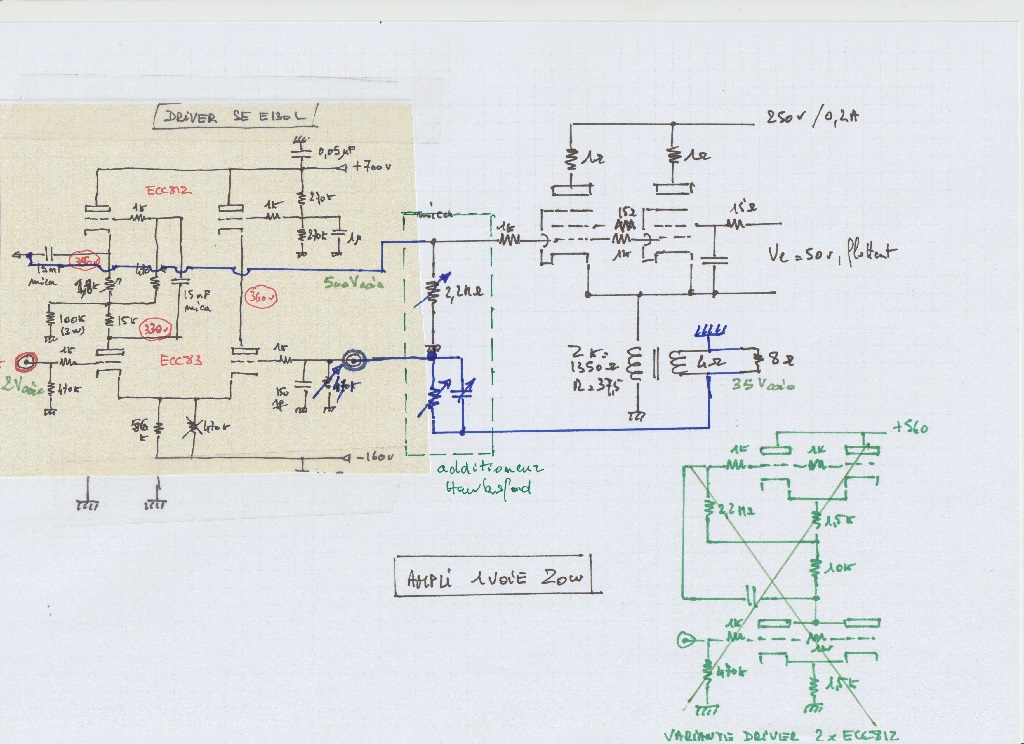 DRIVER SE E130L
250V / 0,2A
0,05µF
+700V
1Ω
1Ω
ECC812
1K
1K
270K
270K
1µ
15Ω
1K
1K
15Ω
15nF
mica
15nF
mica
500V
360V
2,2MΩ
Ve = 50V, flottant
100K
(3W)
15K
330V
1K
ECC83
1K
2V
470K
150
pF
470K
56
K
470K
-160V
Z K=
1350Ω
R=37,5
4Ω
8Ω
35V
additionneur
+560
1K
1K
2,2MΩ
1,5K
10K
AMPLI 1 VOIE 20W
1K
1K
470K
1,5K
VARIANTE DRIVER 2 x ECC812